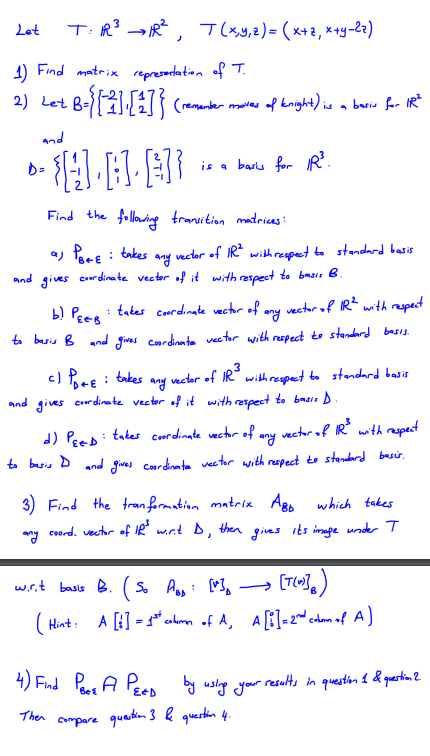 Let T: ℝ³ → ℝ² , T(x,y,z) = (x+z, x+y-2z)
1) Find matrix representation of T.
2) Let B = {[-2 1], [1 2]} (remember moves of knight) is a basis for ℝ²
and
D = {[1 -1 2], [1 0 1], [2 -1 -1]} is a basis for ℝ³.
Find the following transition matrices:
a) P_{B←E} : takes any vector of ℝ² with respect to standard basis
and gives coordinate vector of it with respect to basis B.
b) P_{E←B} : takes coordinate vector of any vector of ℝ² with respect
to basis B and gives coordinate vector with respect to standard basis.
c) P_{D←E} : takes any vector of ℝ³ with respect to standard basis
and gives coordinate vector of it with respect to basis D.
d) P_{E←D} : takes coordinate vector of any vector of ℝ³ with respect
to basis D and gives coordinate vector with respect to standard basis.
3) Find the tranformation matrix A_{BD} which takes
any coord. vector of ℝ³ w.r.t D, then gives its image under T
w.r.t basis B. ( So A_{BD} : [v]_D → [T(v)]_B )
( Hint: A [1 0 0] = 1st column of A, A [0 1 0] = 2nd column of A )
4) Find P_{B←E} A P_{E←D} by using your results in question 1 & question 2
Then compare question 3 & question 4.